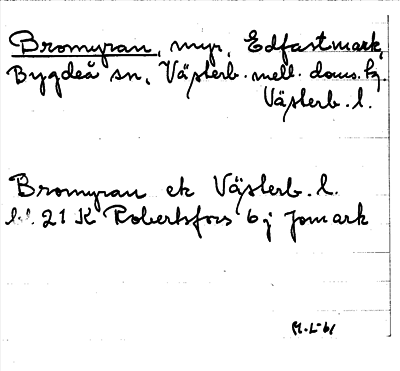 Bromyran, myr, Edfastmark,
Bygdeå sn, Västerb. mell. doms. hg.
Västerb. l.
Bromyran ek Västerb. l.
bl. 21 K Robertsfors 6 j Jomark
M.L-61